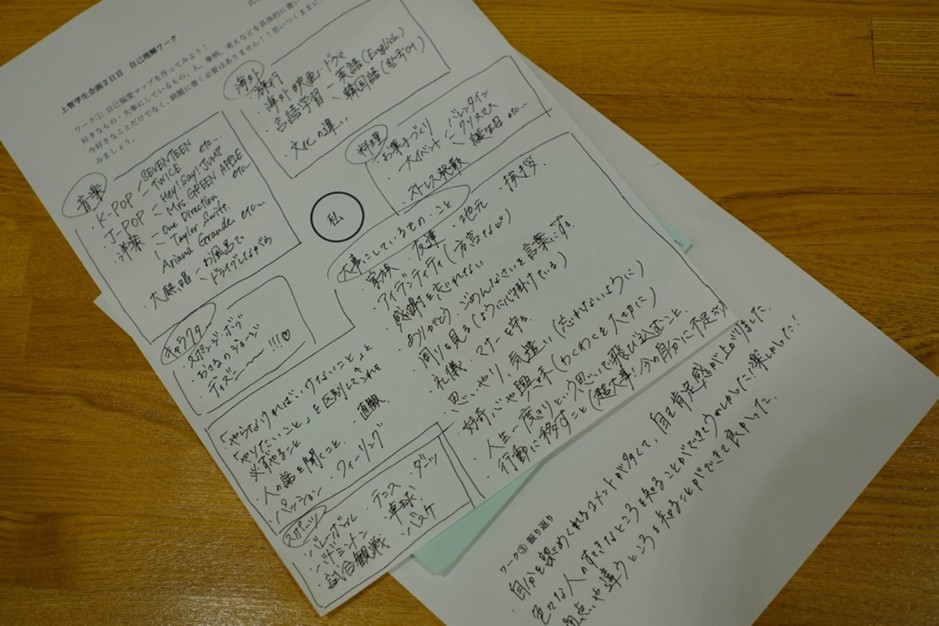 上智学生企画2日目 自己理解ワーク
ワーク① 自己偏愛マップを作ってみよう！
好きなもの・大事にしているもの、人、事柄、考えなどを具体的に書い
今好きなことだけでなく、綺麗に書く必要はありません！！思いつくままに、
みましょう。
海外
・旅行
・海外映画、ドラマ
・言語学習 - 英語(English)
- 韓国語(한국어)
・文化の違い
音楽
・K-POP - SEVENTEEN
- TWICE etc...
・J-POP - Hey! Say! JUMP
- Mrs. GREEN APPLE etc...
・洋楽 - One Direction
- Taylor Swift.
Ariana Grande etc...
・大熱唱 - お風呂で
- ドライブしながら
料理
・お菓子づくり
・大イベント - バレンタイン
- クリスマス
- 誕生日 etc...
・ストレス発散
私
大事にしているもの・こと
・家族 ・友達 ・地元 ・挨拶
・アイデンティティ(方言など)
・感謝を忘れない
・ありがとう、ごめんなさいを言葉にする
・周りを見る
・礼儀、マナーを守る
・思いやり、気遣い(忘れないように)
・好奇心や興味(わくわくを大切に)
・人生一度きりという思いで飛び込むこと、
行動に移すこと(超大事!今の自分に不足気)
キャラクター
・スポンジ・ボブ
・おさるのジョージ
・ディズニー〜!!!♡
・「やらなければいけないこと」と
「やりたいこと」を区別してきれを
必ずやること
・人の話を聞くこと ・直感、
・パッション ・フィーリング
スポーツ
・バレーボール ・テニス ・ダンツ
・バドミントン ・卓球
・試合観戦 ・バスケ
ワーク③ 振り返り
・自分を認めてくれるコメントが多くて、自己肯定感が上がりました。
色々な人のすてきなところを知ることができてうれしかったし楽しかった！
通点や違うところも知ることができて良かった。